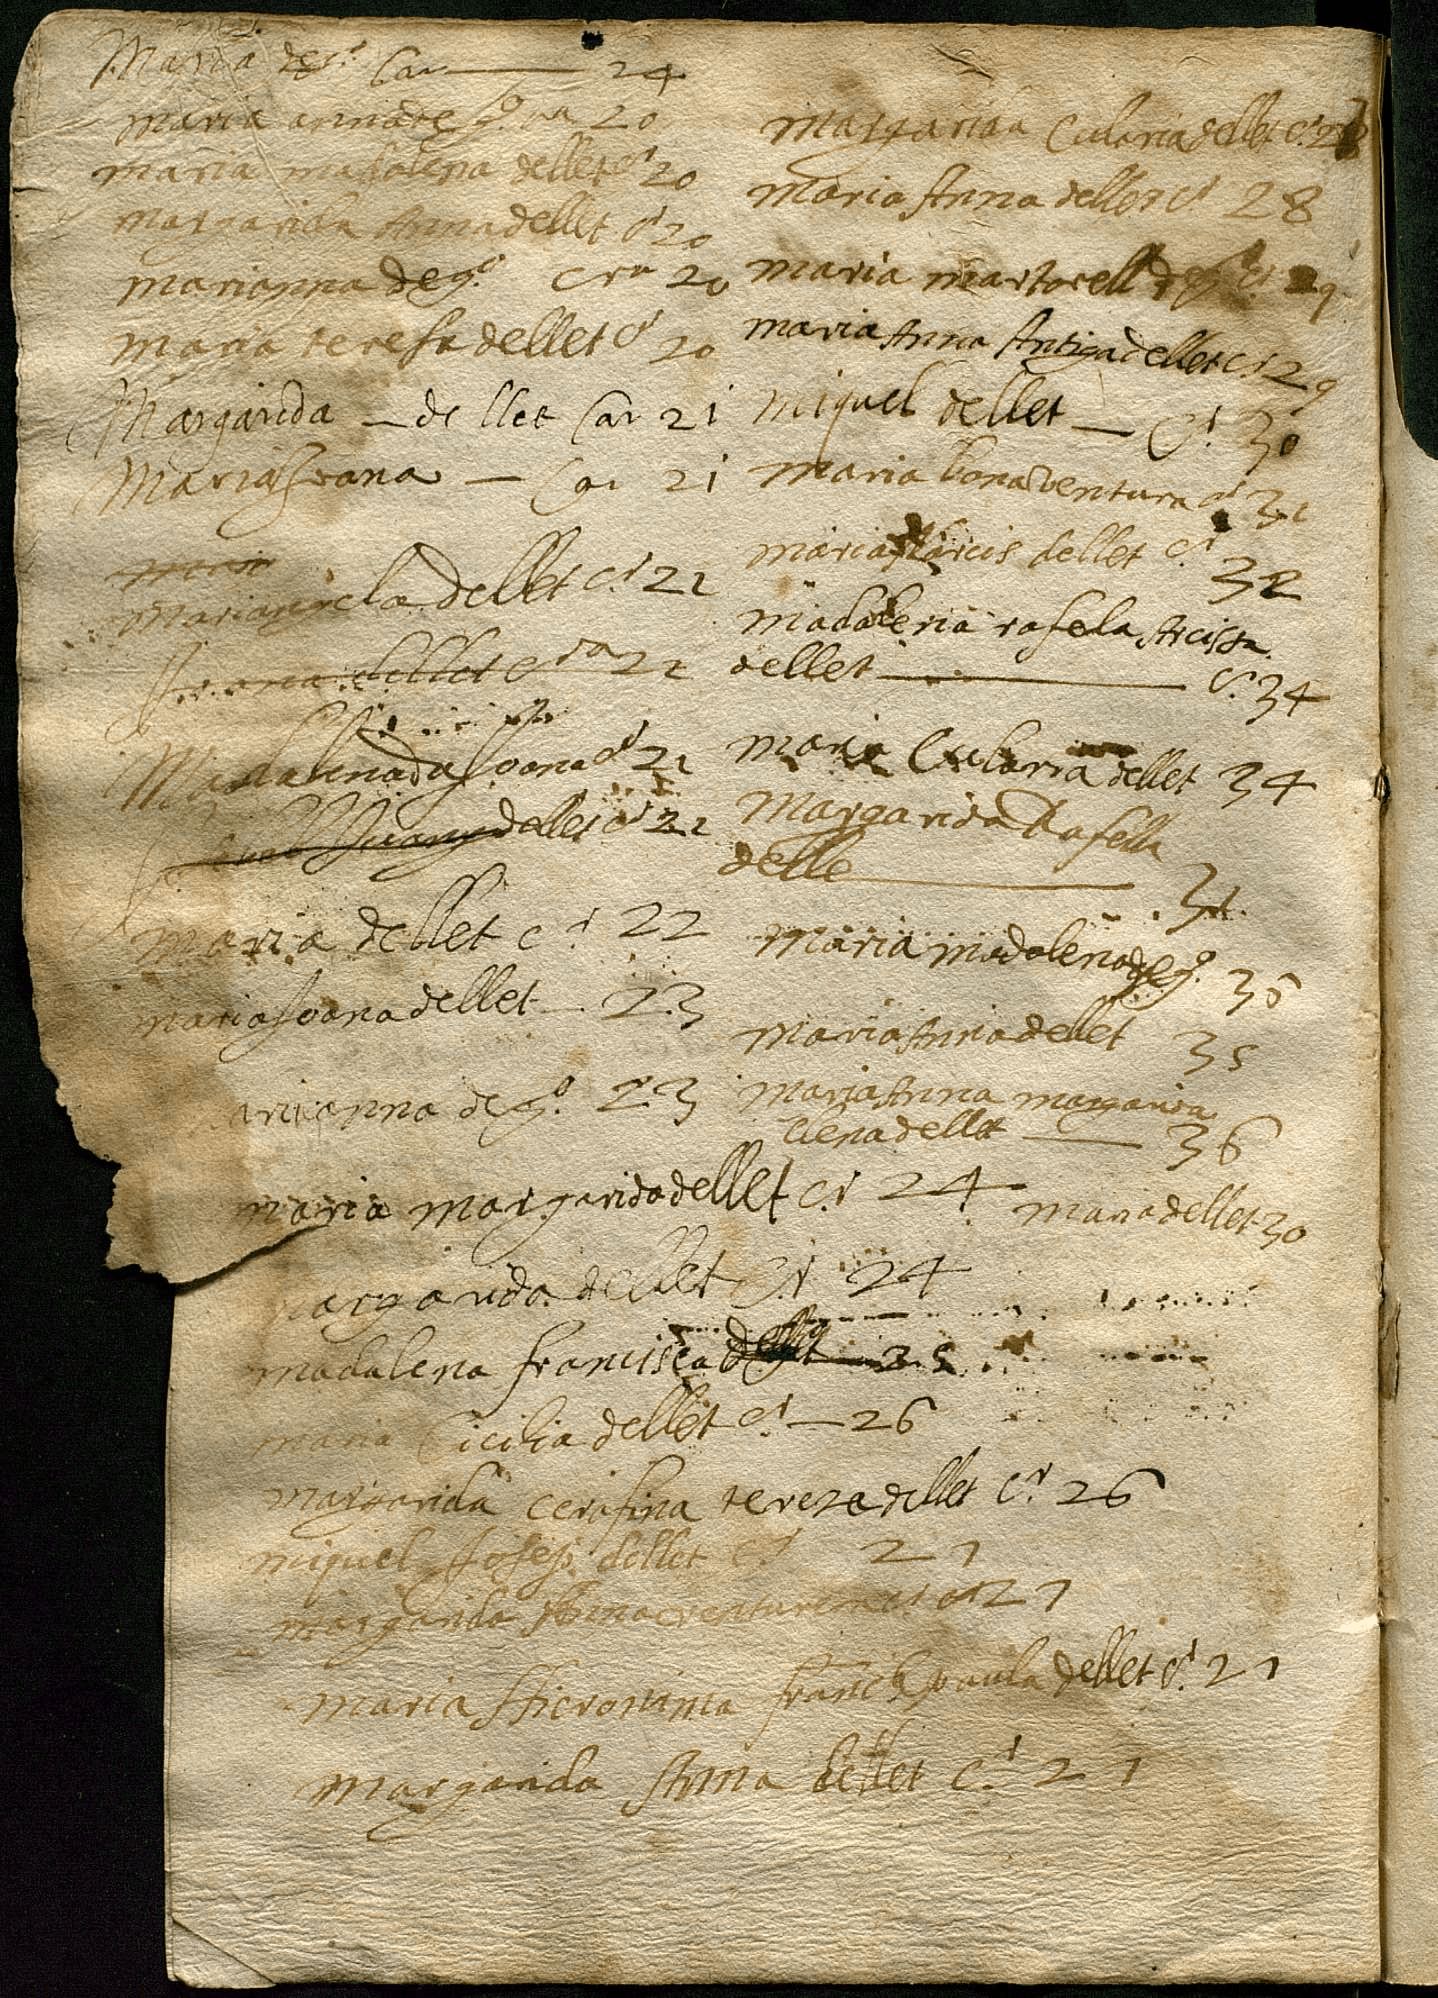 Maria deg.º Car 24
maria anna de g.º ca 20
maria madalena dellet c.r 20
margarida Anna dellet c.r 20
marianna de g.º cra 20
maria teresa dellet c.r 20
Margarida — de llet Car 21
Maria Joana — Car 21
mariangela dellet c.r 21
Joana dellet c ra 21
Madalena Joana c.r 21
dellet c.r 21
maria dellet c.r 22
maria Joana dellet 23
arianna de g.º 23
maria margarida dellet c.r 24
argarida dellet c.r 24
madalena francisca 25
maria Cicilia dellet c.r — 26
margarida cerafina tereza dellet c.r 26
miquel Josep dellet c.r 27
margarida Anna 27
maria Hieronima paula dellet c.r 27
margarida Anna dellet c.r 27
margarida Eularia dellet c.r 28
maria Anna dellet c.r 28
maria martorell de g.º c.r 29
maria Anna Antiga dellet c.r 29
miquel dellet — c.r 30
maria bonaventura c.r 31
maria Narcis dellet c.r 32
madalena rafela
dellet — c.r 34
maria Eularia dellet 34
Margarida Rafella
delle — 34
maria madalena de g.º 35
maria Anna dellet 35
maria Anna margarida
Elena dellet — 36
maria dellet 30